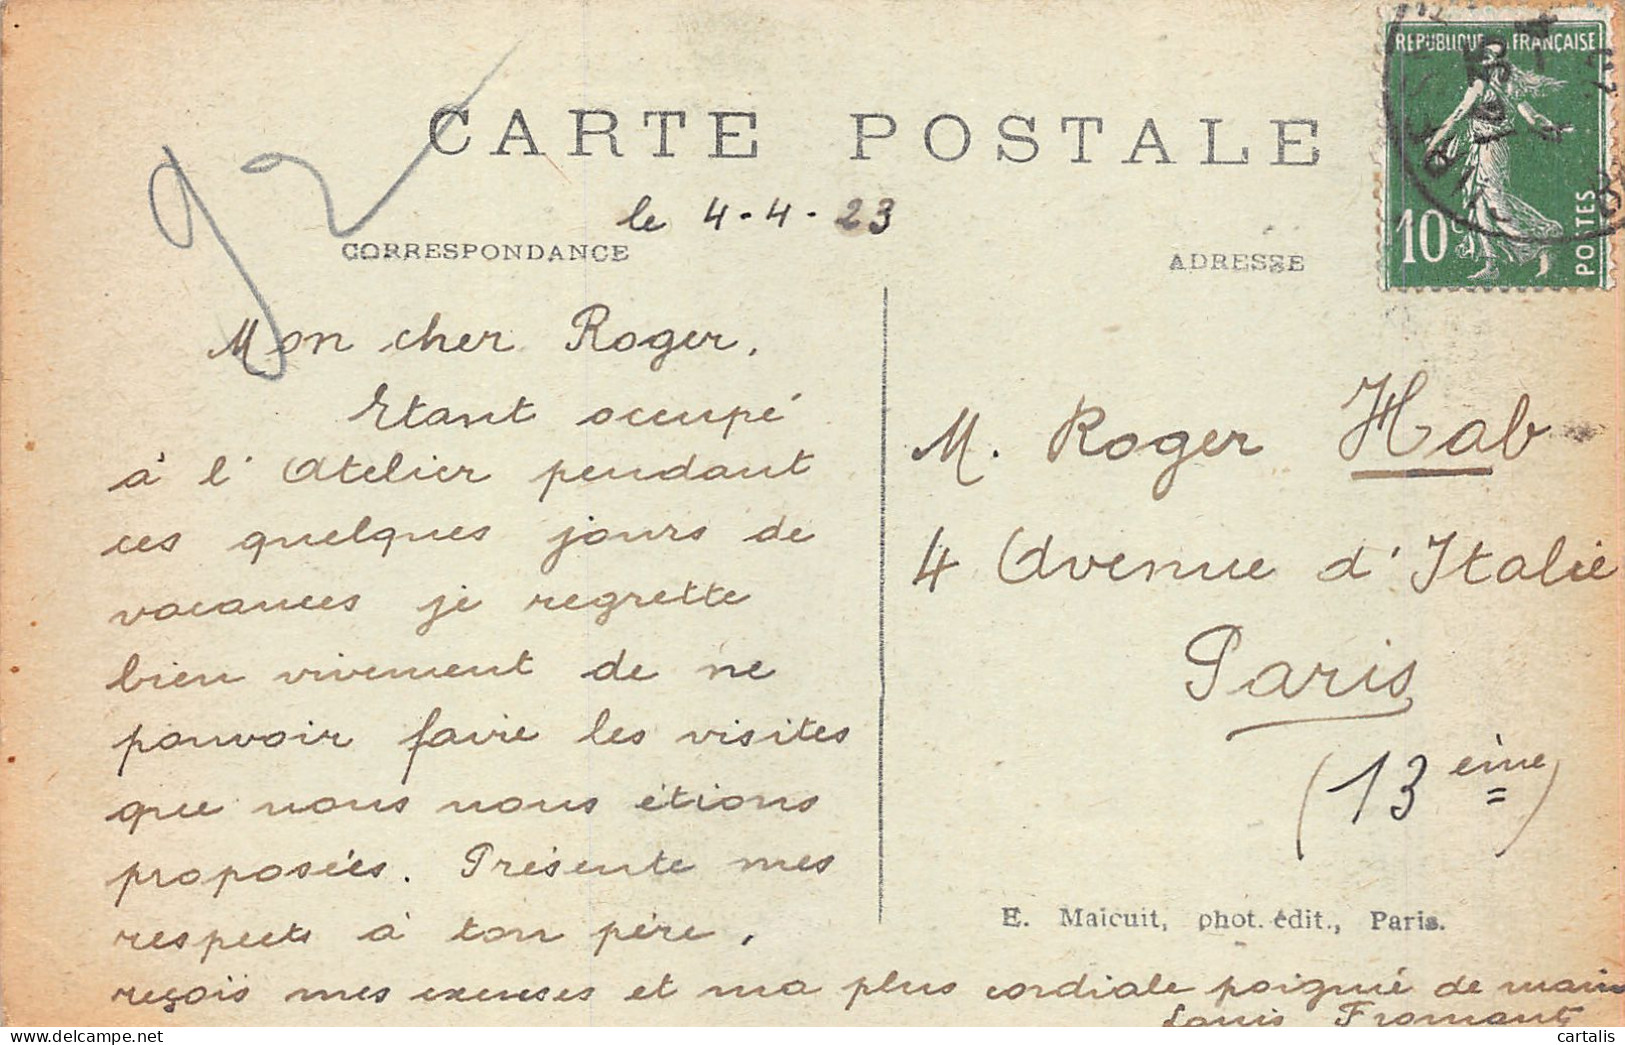 92
CARTE POSTALE
le 4-4-23
CORRESPONDANCE
ADRESSE
REPUBLIQUE FRANÇAISE
10c
POSTES
Mon cher Roger,
Etant occupé
à l'Atelier pendant
ces quelques jours de
vacances je regrette
bien vivement de ne
pouvoir faire les visites
que nous nous étions
proposées. Présente mes
respects à ton père,
reçois mes excuses et ma plus cordiale poignié de main
Louis Fromant
M. Roger Hab
4 Avenue d'Italie
Paris
(13 ème)
E. Maicuit, phot. édit., Paris.
cartalis